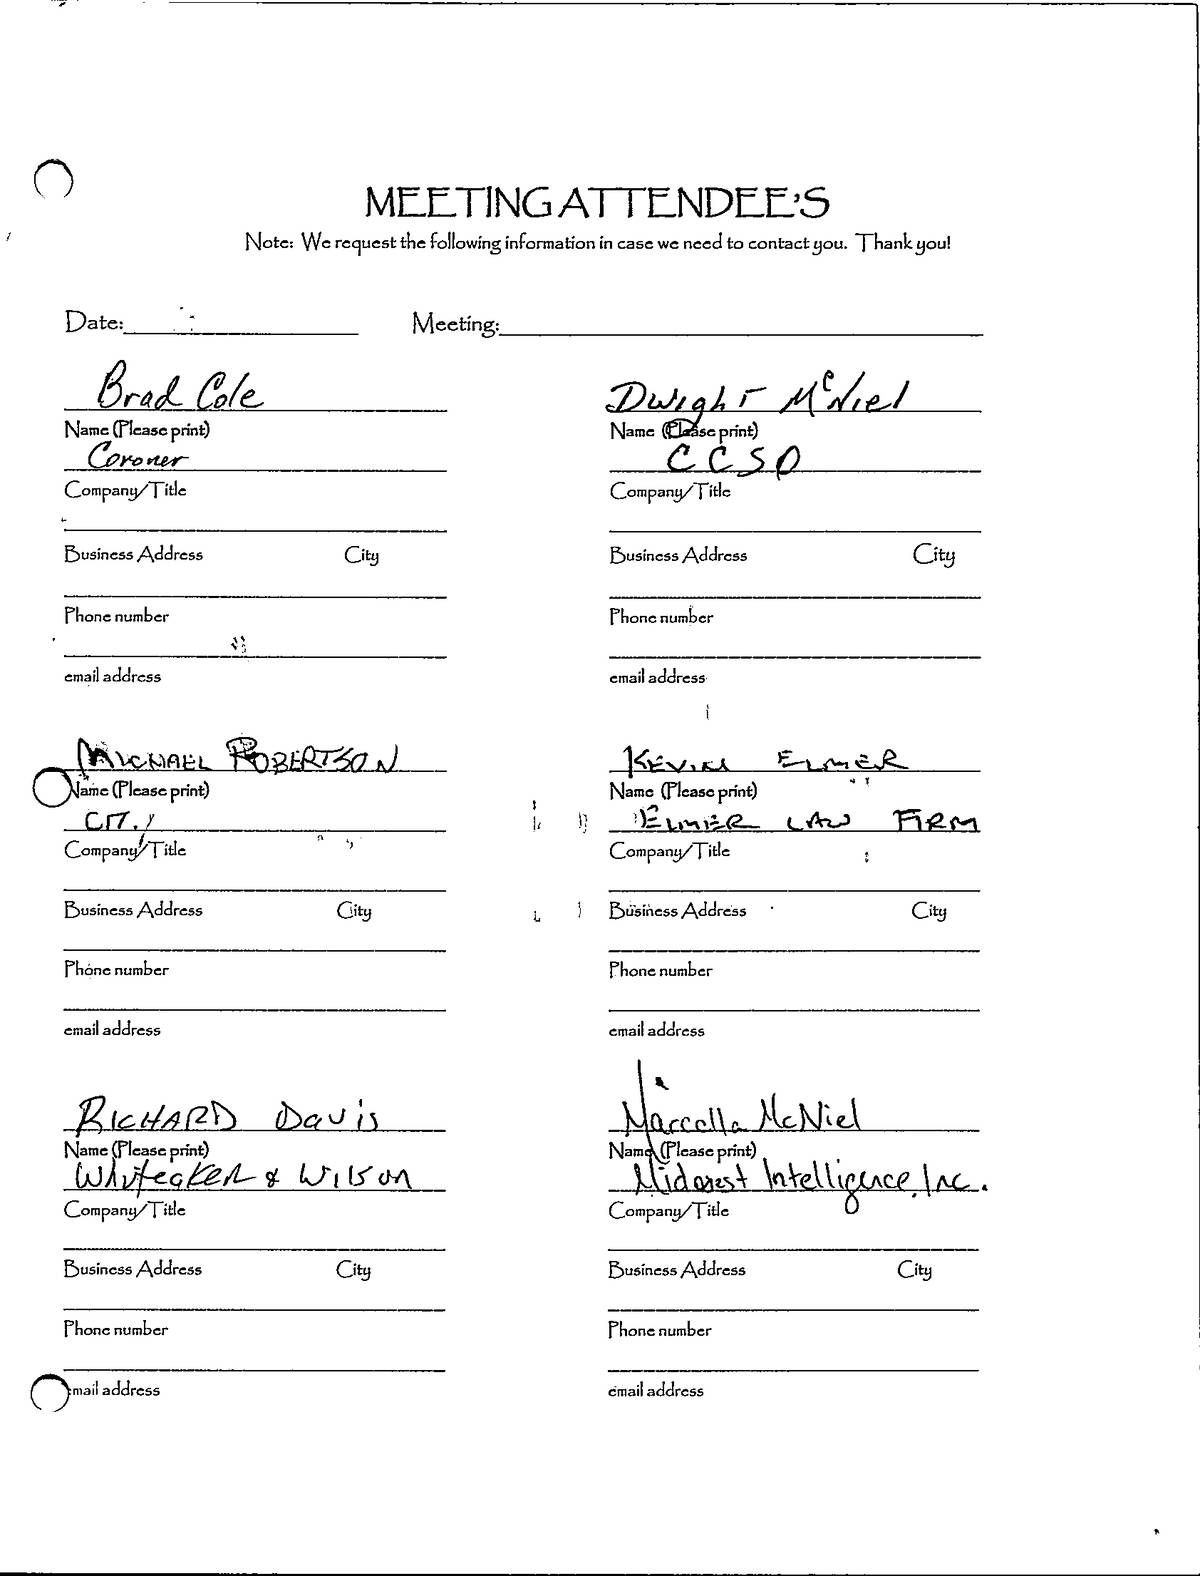 MEETING ATTENDEE'S
Note: We request the following information in case we need to contact you. Thank you!
Date: Meeting:
Brad Cole
Name (Please print)
Coroner
Company/Title
Business Address City
Phone number
email address
Dwight McNiel
Name (Please print)
CCSO
Company/Title
Business Address City
Phone number
email address
MICHAEL ROBERTSON
Name (Please print)
CITY
Company/Title
Business Address City
Phone number
email address
KEVIN ELMER
Name (Please print)
ELMER LAW FIRM
Company/Title
Business Address City
Phone number
email address
RICHARD DAVIS
Name (Please print)
Whiteaker & Wilson
Company/Title
Business Address City
Phone number
email address
Marcella McNiel
Name (Please print)
Midwest Intelligence, Inc.
Company/Title
Business Address City
Phone number
email address